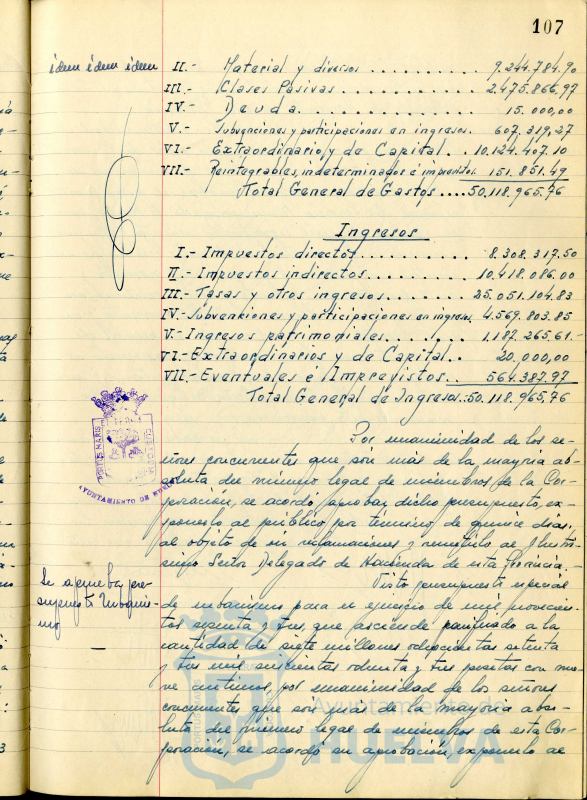 107
idem idem idem
II.- Material y diversos .......... 9.244.784.90
III.- Clases Pasivas .......... 2.475.866,97
IV.- Deuda .......... 15.000,00
V.- Subvenciones y participaciones en ingresos. 607.319,27
VI.- Extraordinario y de Capital.. 10.124.407,10
VII.- Reintegrables, indeterminados é imprevistos. 151.851.49
Total General de Gastos .... 50.118.965.76
Ingresos
I.- Impuestos directos .......... 8.308.317.50
II.- Impuestos indirectos .......... 10.418.086.00
III.- Tasas y otros ingresos ........ 25.051.104.83
IV.- Subvenciones y participaciones en ingresos. 4.569.803.85
V.- Ingresos patrimoniales ....... 1.187.265,61.-
VI.- Extraordinarios y de Capital.. 20.000,00
VII.- Eventuales é Imprevistos.. 564.387.97
Total General de Ingresos.: 50.118.965,76
Por unanimidad de los se-
ñores concurrentes que son más de la mayoria ab-
soluta del número legal de miembros de la Cor-
poración, se acordó aprobar dicho presupuesto, ex-
ponerlo al público por término de quince dias,
al objeto de oir reclamaciones y remitirlo al Ilustri-
simo Señor Delegado de Hacienda de esta Provincia.-
Se aprueba pre-
supuesto Urbanis-
mo
Visto presupuesto especial
de urbanismo para el ejercicio de mil novecien-
tos sesenta y tres, que asciende nivelado a la
cantidad de siete millones ochocientas setenta
y tres mil seiscientas ochenta y tres pesetas con nue-
ve centimos, por unanimidad de los señores
concurrentes que son más de la mayoria abso-
luta del número legal de miembros de esta Cor-
poración, se acordó su aprobación, exponerlo al
AYUNTAMIENTO DE HUELVA
PORTUS MARIS
CUSTODIA
Ayuntamiento de
HUELVA